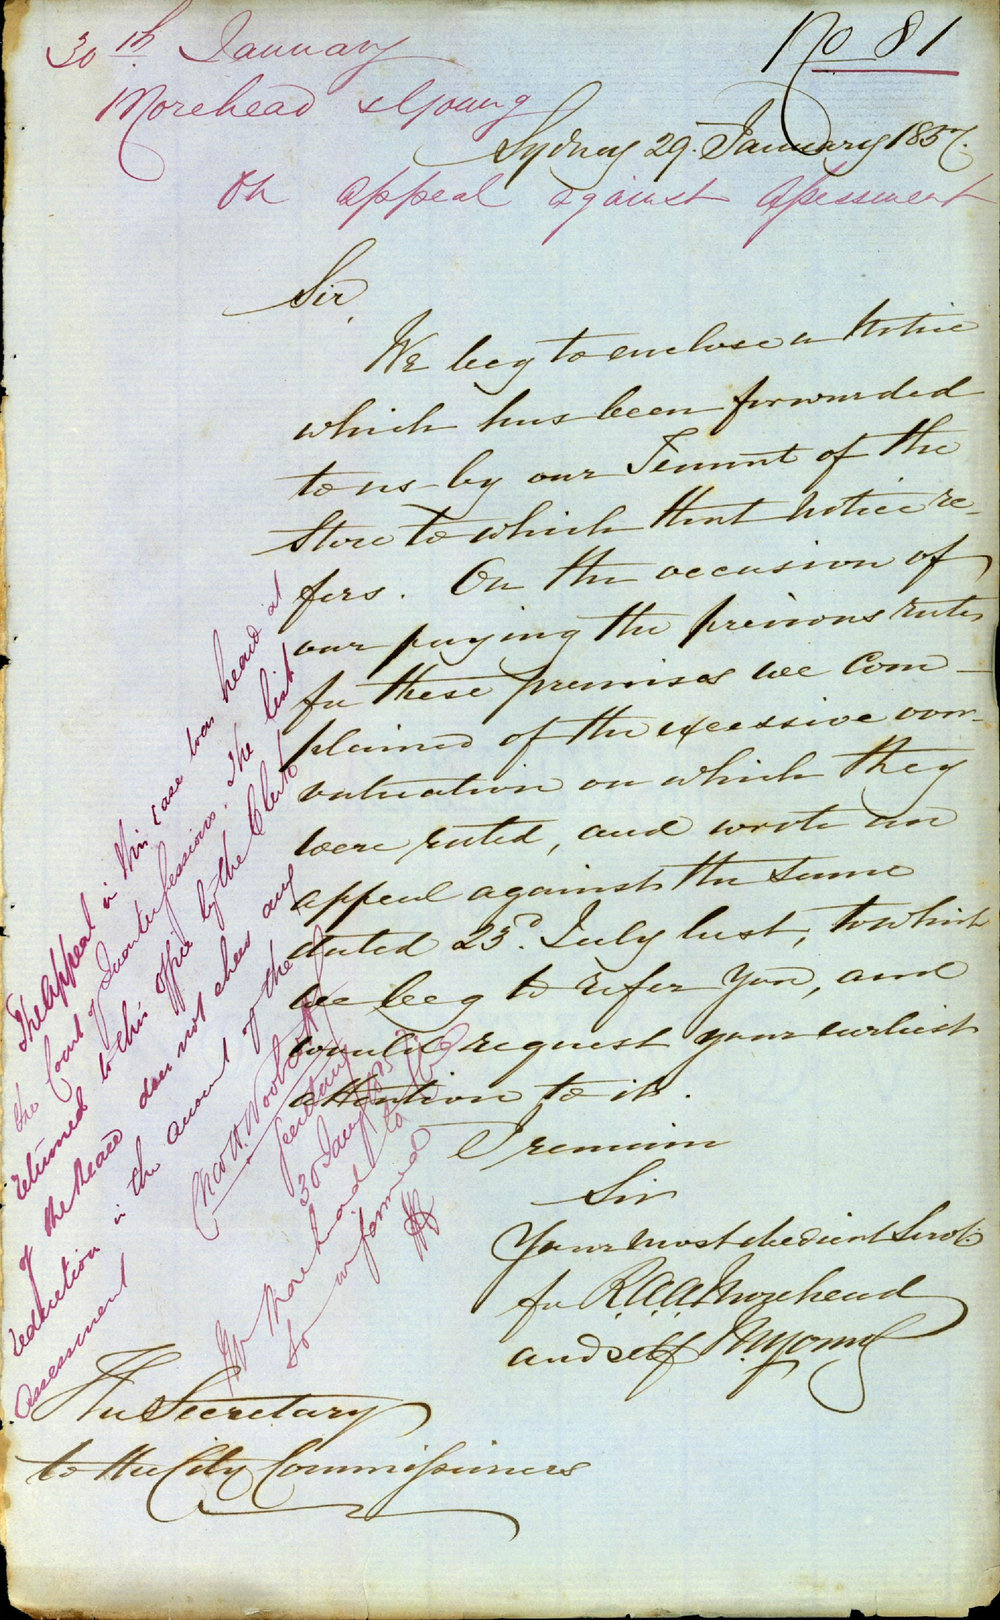 No 81
30th January
Morehead & Young
Sydney 29. January 1857.
On appeal against Assessment
Sir,
We beg to enclose a Notice
which has been forwarded
to us by our Tenant of the
Store to which that notice re-
fers. On the occasion of
our paying the previous rates
for these premises we com-
plained of the excessive over-
valuation on which they
were rated, and wrote an
appeal against the same
dated 23d. July last, to which
we beg to refer you, and
would request your earliest
attention to it.
I remain
Sir
Your most obedient Servts
for R.A.A. Morehead
and self M. Young
The Secretary
to the City Commissioners
The appeal in this case was heard at
the Court of Quarter Sessions. The list
returned to this office by the Clerk
of the Peace does not shew any
reduction in the amount of the
assessment
Chas H. Woolcott
Secretary
30 Jany
Mr Morehead to be
so informed